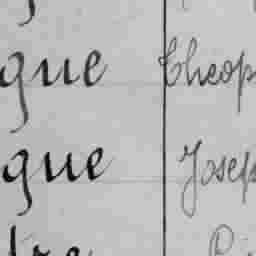 gue Theop
gue Josep